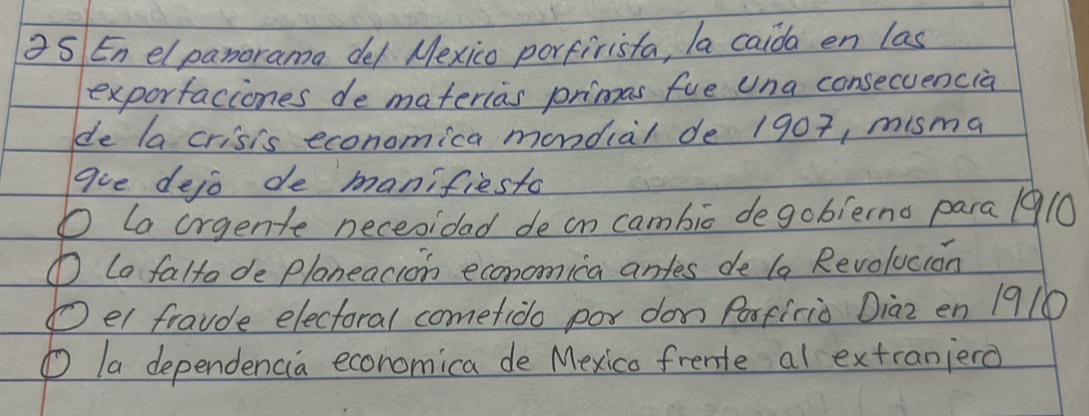 25 En el panorama del Mexico porfirista, la caída en las
exportaciones de materias primas fue una consecuencia
de la crisis economica mondial de 1907, misma
que dejó de manifiesto
O la urgente necesidad de un cambio de gobierno para 1910
O la falta de planeación economica antes de la Revolución
O el fraude electoral cometido por don Porfirio Díaz en 1910
O la dependencia economica de Mexico frente al extranjero